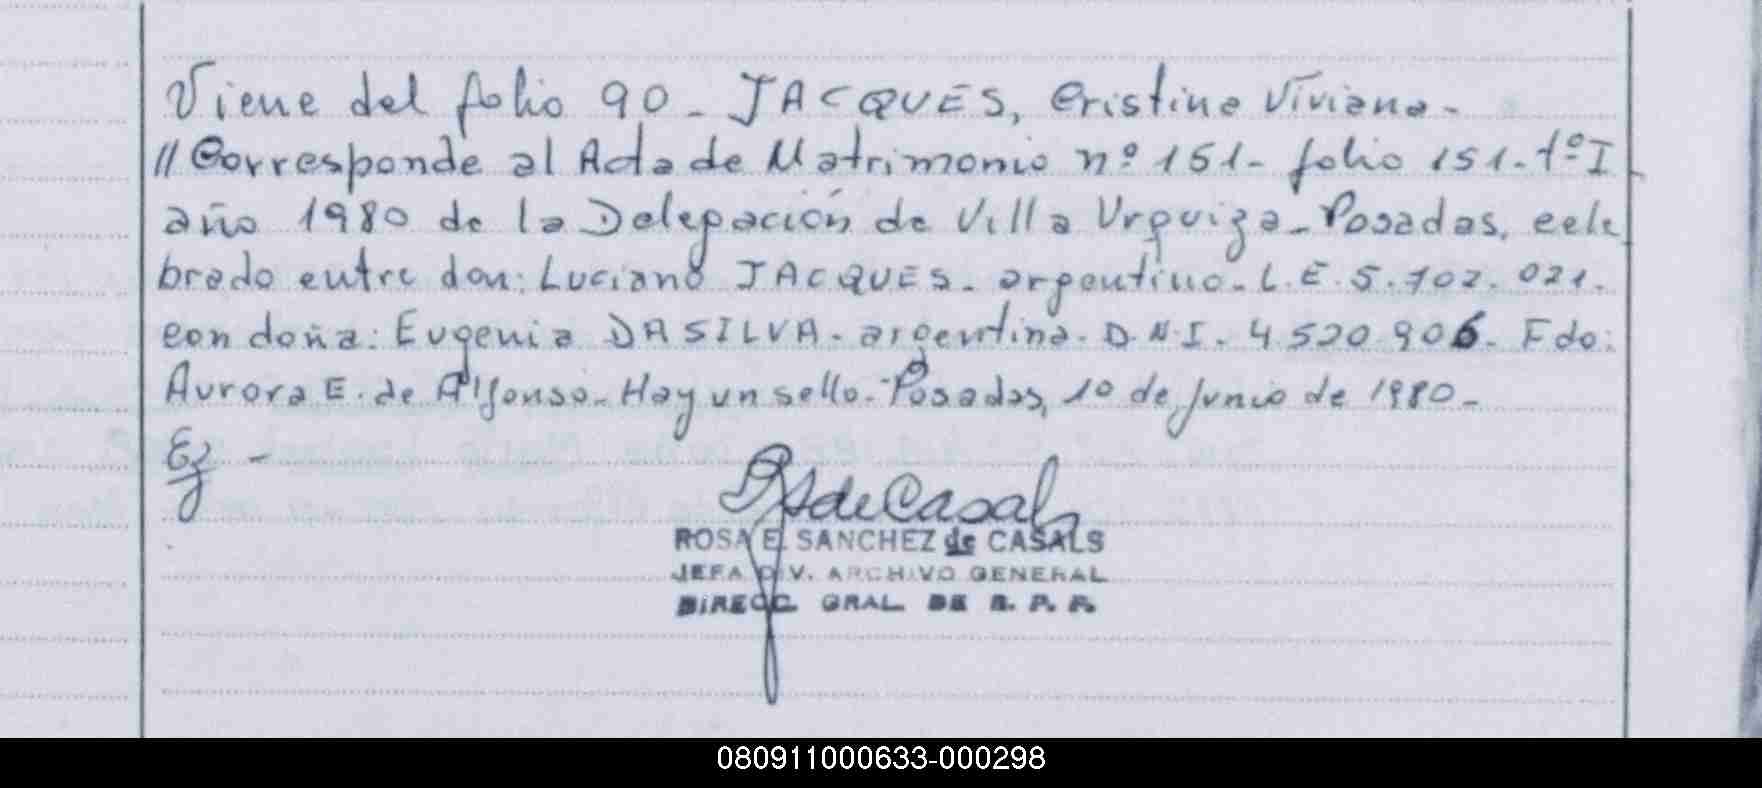 Viene del folio 90 - JACQUES, Cristina Viviana -
// Corresponde al Acta de Matrimonio nº 151 - folio 151 - tº I
año 1980 de la Delegación de Villa Urquiza - Posadas, cele
brado entre don: Luciano JACQUES - argentino - L.E. 5.702.021.
con doña: Eugenia DA SILVA - argentina - D.N.I. 4.520.906 - Fdo:
Aurora E. de Alfonso - Hay un sello - Posadas, 10 de junio de 1980 -
Ez -
RSdeCasals
ROSA E. SANCHEZ de CASALS
JEFA DIV. ARCHIVO GENERAL
DIRECC. GRAL. DE R. P. P.
080911000633-000298